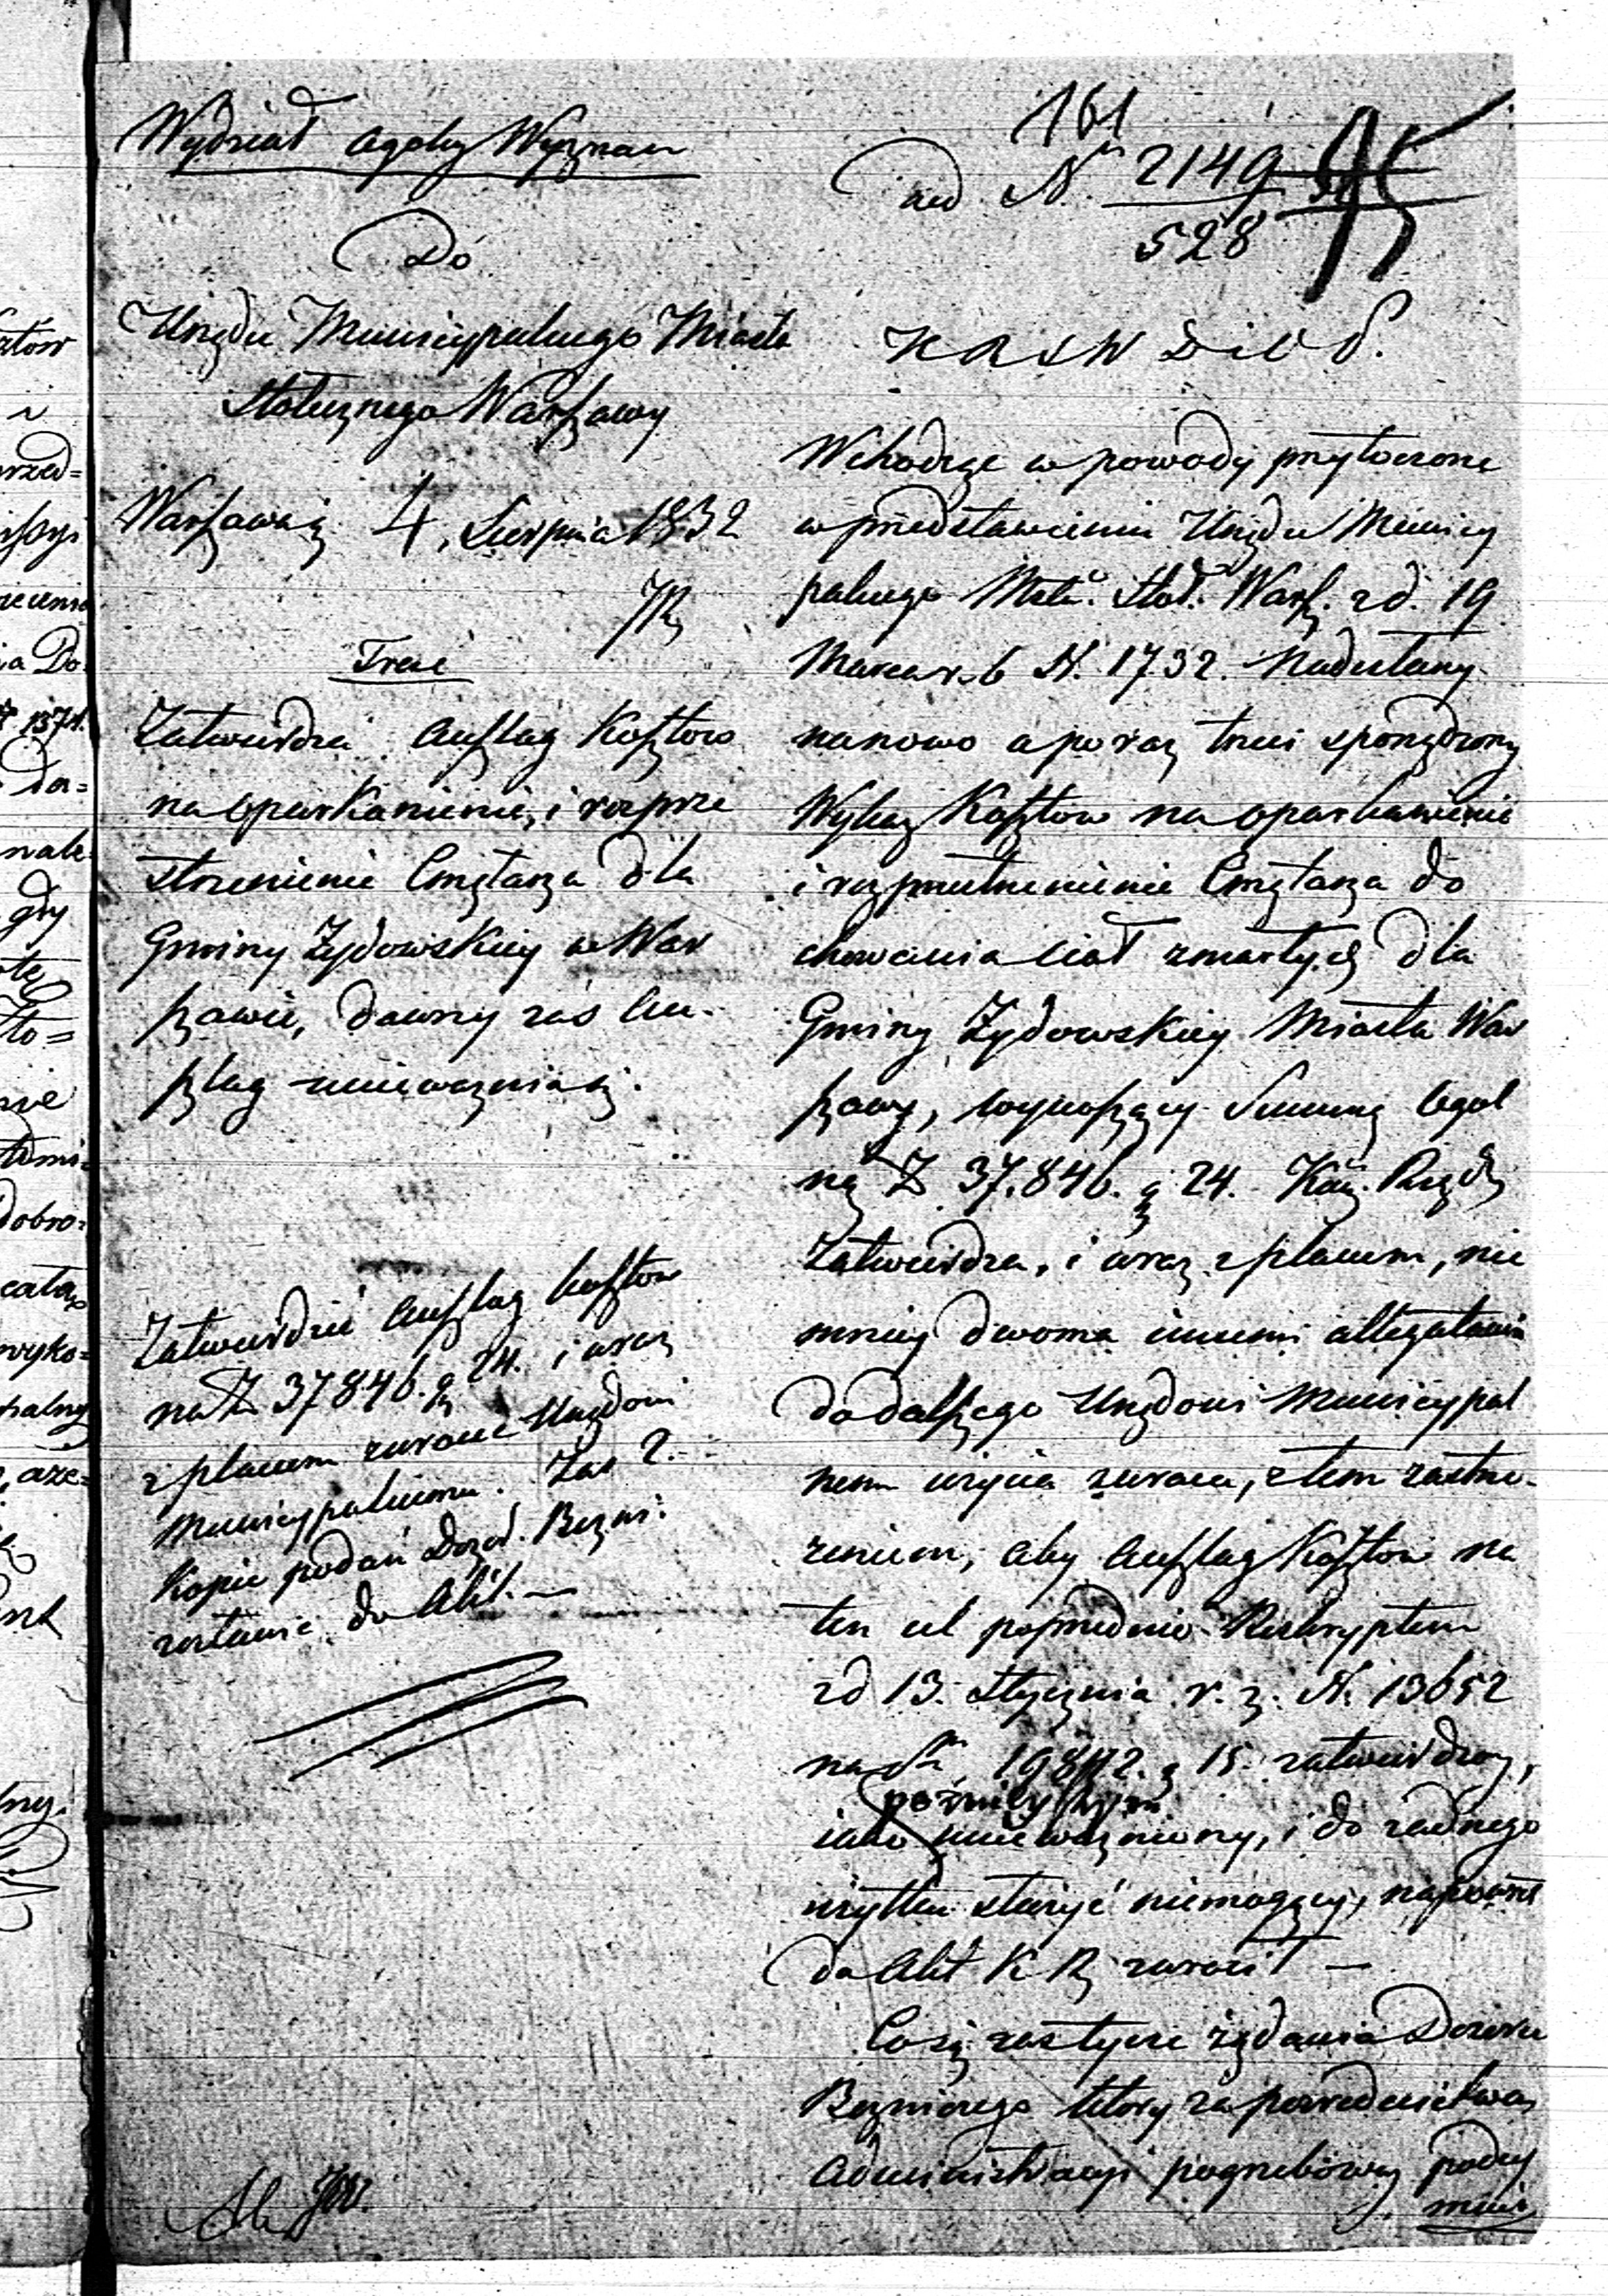 161
Wydział ogólny Wyznan
ad N. 2149
528
Do
Urzędu Municypalnego Miasta
Stołecznego Warszawy
Warszawa 4. Sierpnia 1832
Treść
Zatwierdza Anszlag Kosztow
na oparkanienie, i rozprze
strzenienie Cmętarza dla
Gminy Żydowskiey w War
szawie, dawny zaś An-
szlag unieważnia się.
Zatwierdzić Anszlag kosztow
na Z 37846. g 24. i wraz
z planem zwrocic Urzędowi
Municypalnemu. Zas 2.
Kopie podań Dozor. Bozni.
zostawic do Akt. —
K R S W D i O P.
Wchodząc w powody przytoczone
w przedstawieniu Urzędu Municy
palnego Mta. Stoł. Warsz. z d. 19
Marca r. b N. 1732. Nadesłany
nanowo a poraz trzeci sporządzony
Wykaz Kosztow na oparkanienie
i rozprzestrzenienie Cmętarza do
chowania ciał zmarłych dla
Gminy Żydowskiey Miasta War
szawy, wynoszący Summę Ogol
ną Z 37.846. g 24. Kom. Rządz
Zatwierdza, i wraz z planem, nie
mniey dwoma innemi allegatami
do dalszego Urzędowi Municypal
nemu użycia zwraca, z tem zastrze-
żeniem, aby Anszlag Kosztow na
ten cel poprzednio Reskryptem
z d 13. Stycznia r. z. N. 13652
na 19842. g 15 zatwierdzony,
poźnieyszym
iako unieważniony, i do żadnego
użytku służyć niemogący, napowrot
do Akt K R zwrocił —
Co się zas tycze żądania Dozoru
Bozniczego ktory za posrednictwem
Administracyi pogrzebowey podey
muie